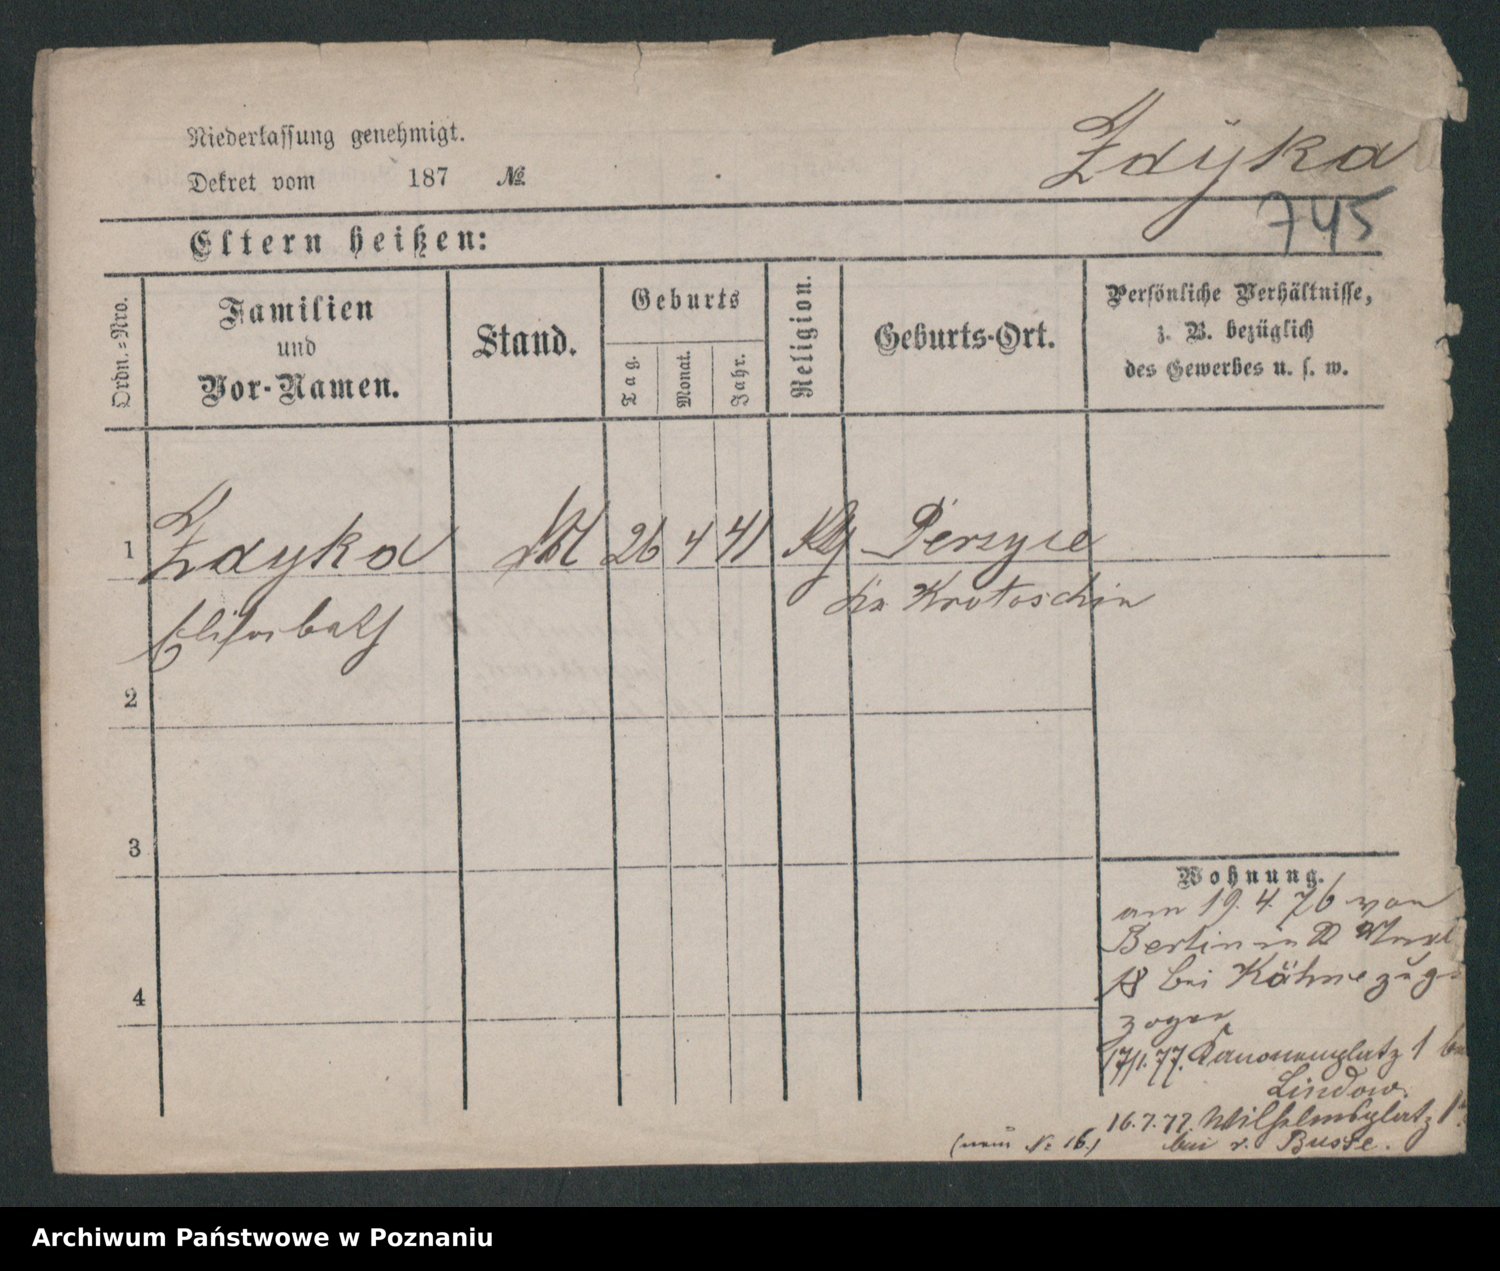 Niederlassung genehmigt.
Zdÿka
Dekret vom 187 №
745
Eltern heißen:
Ordn.=Nro.
Familien
und
Vor-Namen.
Stand.
Geburts
Tag.
Monat.
Jahr.
Religion.
Geburts-Ort.
Persönliche Verhältnisse,
z. B. bezüglich
des Gewerbes u. s. w.
1 Zdyka 26 4 41 Perzyce
Elisabeth Krotoschin
2
3
4
Wohnung.
am 19. 4. 76 von
Berlin
18 bei Kähne zuge
zogen
17/1. 77. Kanonenplatz 1 bei
Lindow.
16. 7. 77. Wilhelmsplatz
bei v. Busse.
(neue No 16.)
Archiwum Państwowe w Poznaniu